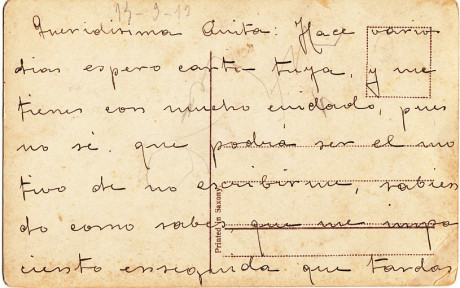 14-9-12
Queridísima Anita: Hace vario
dias espero carta tuya, y me
tienes con mucho cuidado, pues
no sé que podrá ser el mo
tivo de no escribirme, sabien
do como sabes que me impa
ciento enseguida que tardas
Printed in Saxony